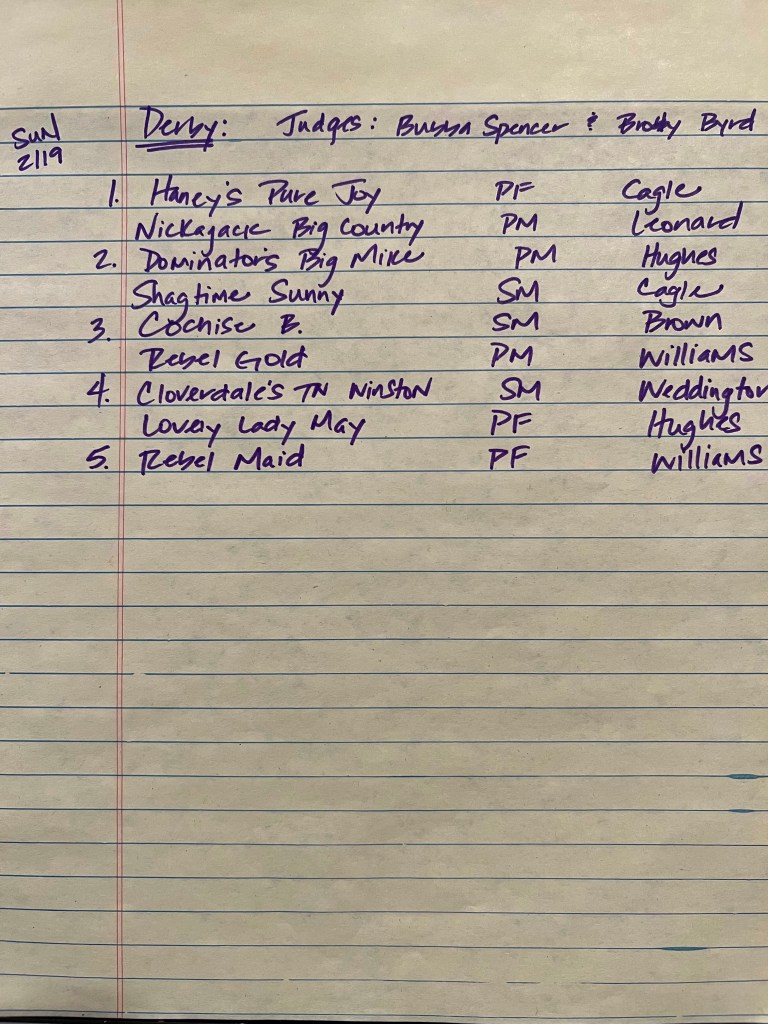 Derby: Judges: Bubba Spencer & Brody Byrd
SUN
2/19
1. Haney's Pure Joy PF Cagle
Nickajack Big Country PM Leonard
2. Dominator's Big Mike PM Hughes
Shagtime Sunny SM Cagle
3. Cochise B. SM Brown
Rebel Gold PM Williams
4. Cloverdale's TN Winston SM Weddington
Lovely Lady May PF Hughes
5. Rebel Maid PF Williams